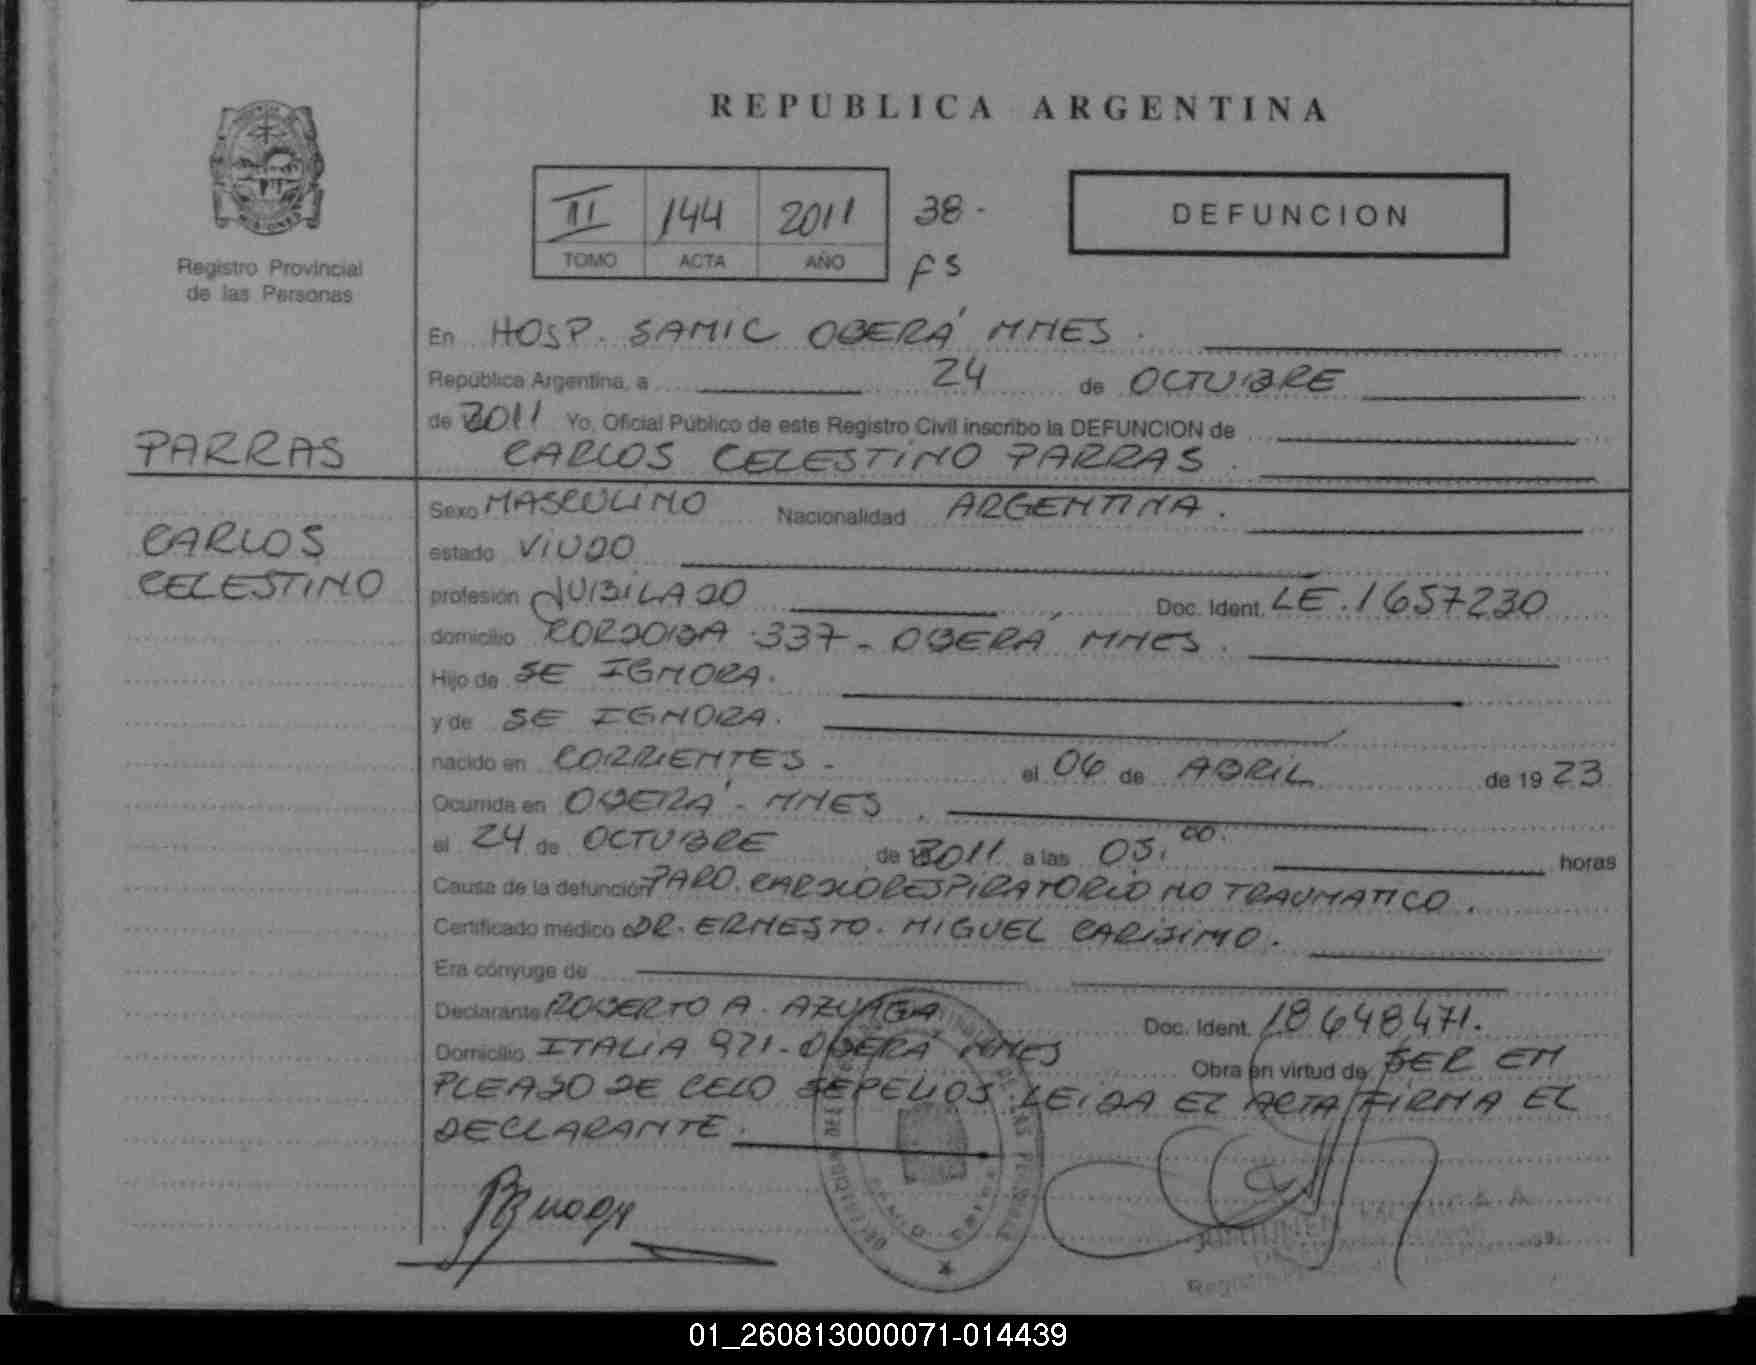 REPUBLICA ARGENTINA
II 144 2011 38-
TOMO ACTA AÑO fs
DEFUNCION
Registro Provincial
de las Personas
En HOSP. SAMIC OBERÁ MNES.
República Argentina, a 24 de OCTUBRE
de 2011 Yo, Oficial Público de este Registro Civil inscribo la DEFUNCION de
PARRAS
CARLOS CELESTINO PARRAS.
CARLOS
CELESTINO
Sexo MASCULINO Nacionalidad ARGENTINA.
estado VIUDO
profesión JUBILADO Doc. Ident. LE. 1657230
domicilio CORDOBA 337- OBERÁ MNES.
Hijo de SE IGNORA.
y de SE IGNORA.
nacido en CORRIENTES. el 06 de ABRIL de 1923
Ocurrida en OBERÁ - MNES
el 24 de OCTUBRE de 2011 a las 03,00. horas
Causa de la defunción PARO. CARDIORESPIRATORIO NO TRAUMATICO.
Certificado médico DR. ERNESTO. MIGUEL CARISIMO.
Era cónyuge de
Declarante ROBERTO A. AZUAGA Doc. Ident. 18648471.
Domicilio ITALIA 921- OBERÁ MNES Obra en virtud de SER EM
PLEADO DE CELO SEPELIOS. LEIDA EL ACTA FIRMA EL
DECLARANTE.
01_260813000071-014439